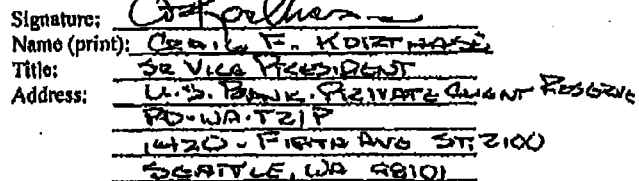 Signature:
Name (print): Craig F. Kortthase
Title: SR Vice President
Address: U.S. Bank. Private Client Reserve
PD-WA-T21P
1420 - Fifth Ave St: 2100
Seattle, WA 98101